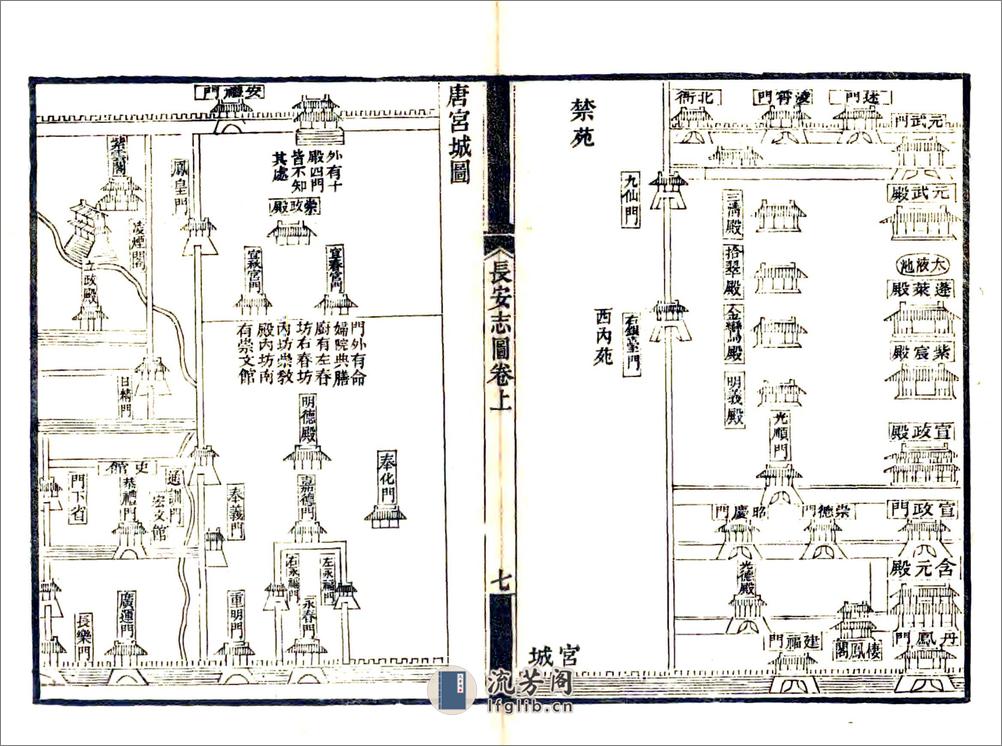 元武門
建門
凌霄門
北衙
元武殿
太液池
蓬萊殿
紫宸殿
宣政殿
宣政門
含元殿
丹鳳門
三清殿
拾翠殿
金鑾殿
明義殿
光順門
崇德門
昭慶門
光德殿
棲鳳閣
建福門
九仙門
右銀臺門
禁苑
西內苑
宮城
長安志圖卷上
七
唐宮城圖
安福門
外有十
殿四門
皆不知
其處
崇政殿
宜春宮門
宜秋宮門
門外有命
婦院典膳
廚有左春
坊右春坊
內坊崇教
殿內坊南
有崇文館
明德殿
奉化門
嘉德門
奉義門
左永福門
右永福門
永春門
重明門
鳳皇門
紫閣
凌煙閣
立政殿
日精門
通訓門
宏文館
史館
恭禮門
門下省
廣運門
長樂門
流芳阁
lfglib.cn